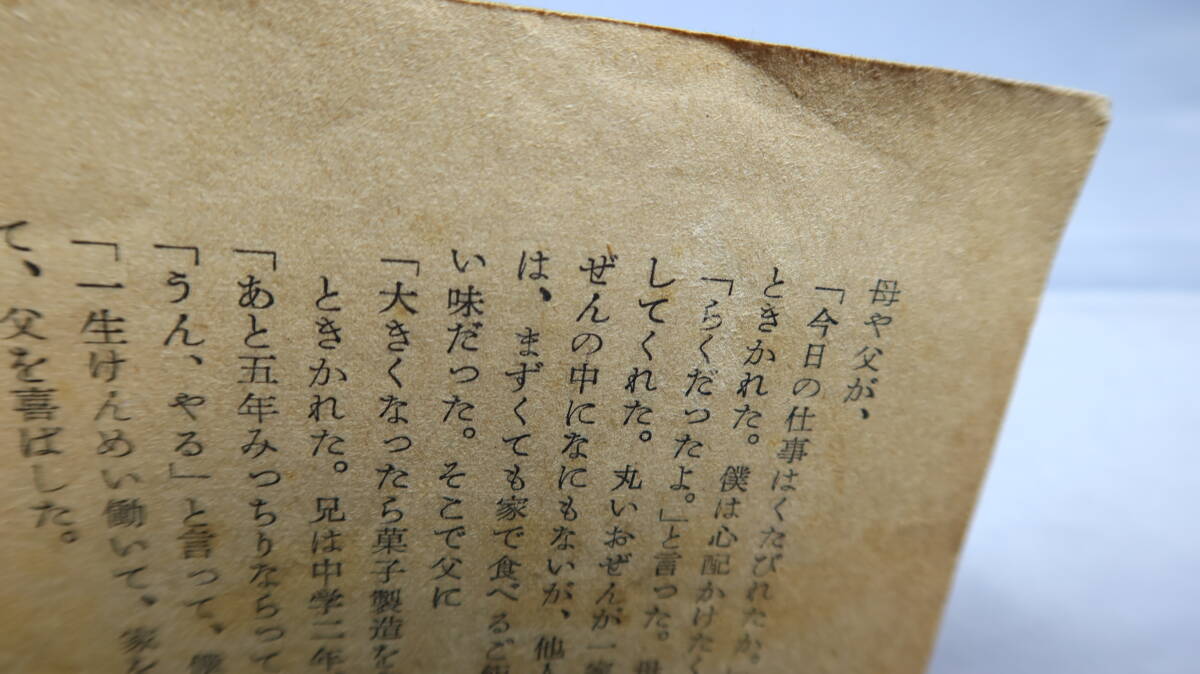 母や父が、
「今日の仕事はくたびれたか。
ときかれた。僕は心配かけたく
「らくだつたよ。」と言つた。母
してくれた。丸いおぜんが一家
ぜんの中になにもないが、他人
は、まずくても家で食べるご飯
い味だつた。そこで父に
「大きくなつたら菓子製造を
ときかれた。兄は中学二年
「あと五年みつちりならつて
「うん、やる」と言つて、僕
「一生けんめい働いて、家を
て、父を喜ばした。